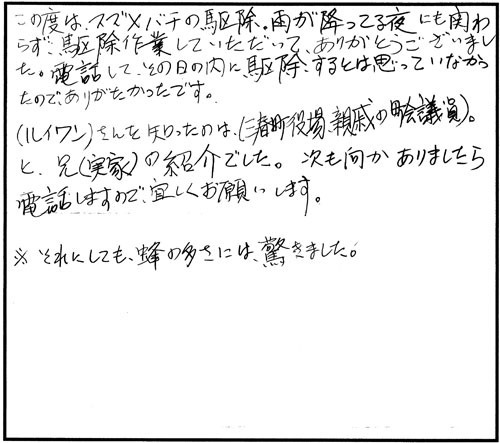 この度は、スズメバチの駆除、雨が降ってる夜にも関わ
らず、駆除作業していただいて、ありがとうございまし
た。電話して、その日の内に駆除、するとは思っていなかっ
たので、ありがたかったです。
(ルイワン)さんを知ったのは、(三春町役場、親戚の町会議員)。
と、兄(実家)の紹介でした。次も何かありましたら
電話しますので、宜しくお願いします。
※それにしても、蜂の多さには、驚きました。